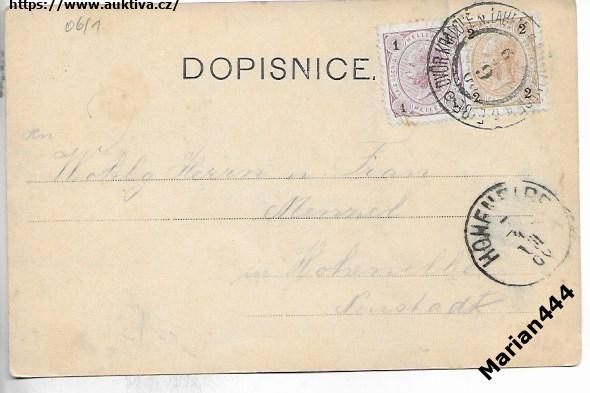 https://www.auktiva.cz/
06/1
DOPISNICE.
1
1
HELLER
2
2
2
2
DVŮR KRÁLOVÉ N. LAB
Wohlg Herrn u Frau
Menzel
in Hohenelbe
Neustadt
HOHENELBE
Marian444